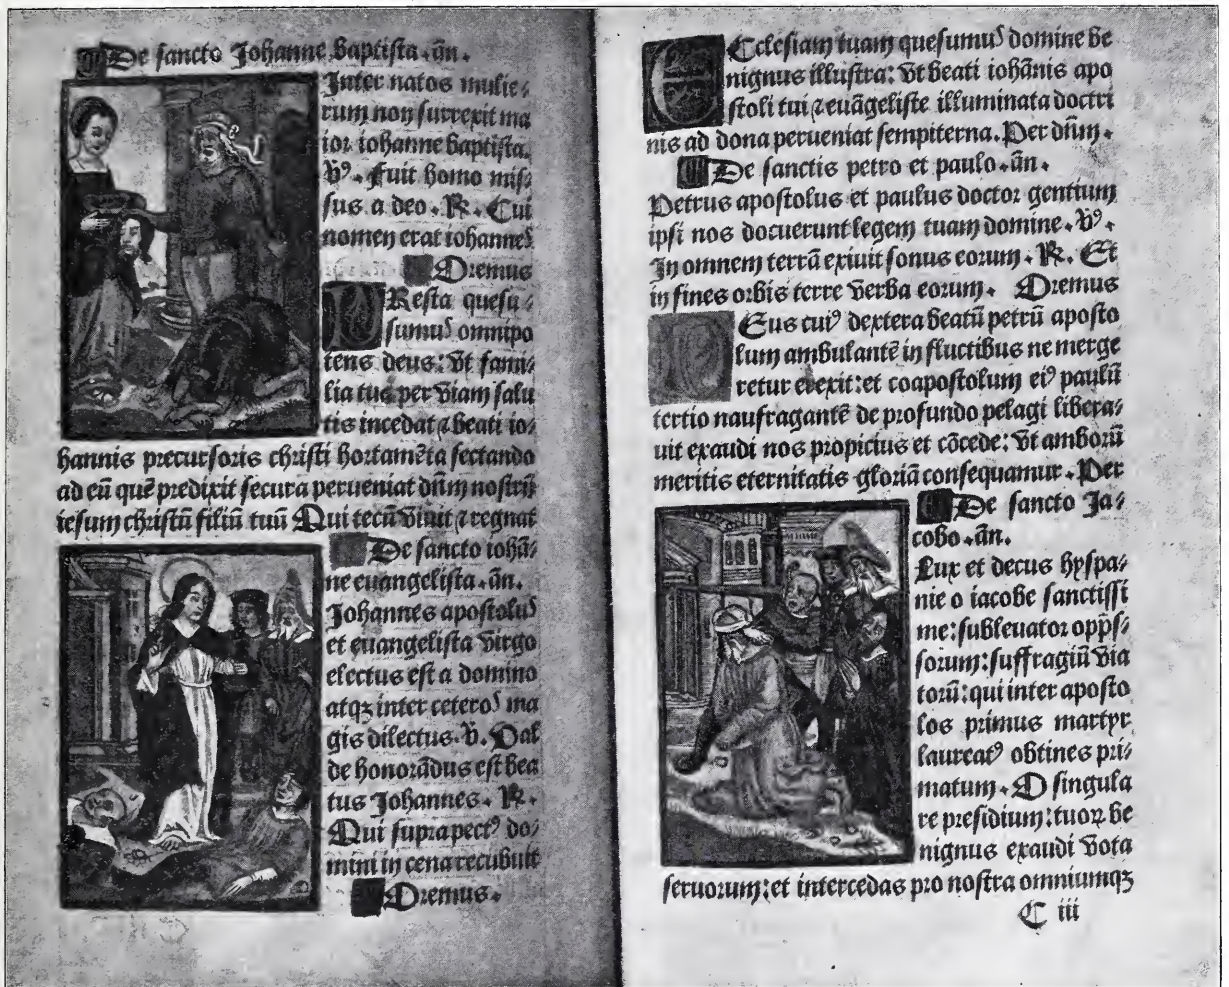 De sancto Johanne baptista. añ.
Inter natos mulie⸗
rum non surrexit ma
ior iohanne baptista.
V̉ꝰ. Fuit homo mis⸗
sus a deo. R̉. Cui
nomen erat iohannes
Oremus
PResta quesu⸗
sumus omnipo
tens deus: vt fami⸗
lia tua per viam salu
tis incedat ⁊ beati io⸗
hannis precursoris christi hortamēta sectando
ad eū quē predixit secura perueniat dñm nostrū
iesum christū filiū tuū Qui tecū viuit ⁊ regnat
De sancto iohā⸗
ne euangelista. añ.
Johannes apostolus
et euangelista virgo
electus est a domino
atqꝫ inter ceteros ma
gis dilectus. V̉. Val
de honorādus est bea
tus Johannes. R̉.
Qui supra pectꝰ do⸗
mini in cena recubuit
Oremus.
ECclesiam tuam quesumus domine be
nignus illustra: vt beati iohānis apo
stoli tui ⁊ euāgeliste illuminata doctri
nis ad dona perueniat sempiterna. Per dñm.
De sanctis petro et paulo. añ.
Petrus apostolus et paulus doctor gentium
ipsi nos docuerunt legem tuam domine. V̉ꝰ.
In omnem terrā exiuit sonus eorum. R̉. Et
in fines orbis terre verba eorum. Oremus
DEus cuiꝰ dextera beatū petrū aposto
lum ambulantē in fluctibus ne merge
retur erexit: et coapostolum eiꝰ paulū
tertio naufragantē de profundo pelagi libera⸗
uit exaudi nos propicius et cōcede: vt amborū
meritis eternitatis gloriā consequamur. Per
De sancto Ja⸗
cobo. añ.
Lux et decus hyspa⸗
nie o iacobe sanctissi
me: subleuator opp̄s⸗
sorum: suffragiū via
torū: qui inter aposto
los primus martyr
laureatꝰ obtines pri⸗
matum. O singula
re presidium: tuoꝝ be
nignus exaudi vota
seruorum: et intercedas pro nostra omniumqꝫ
C iii